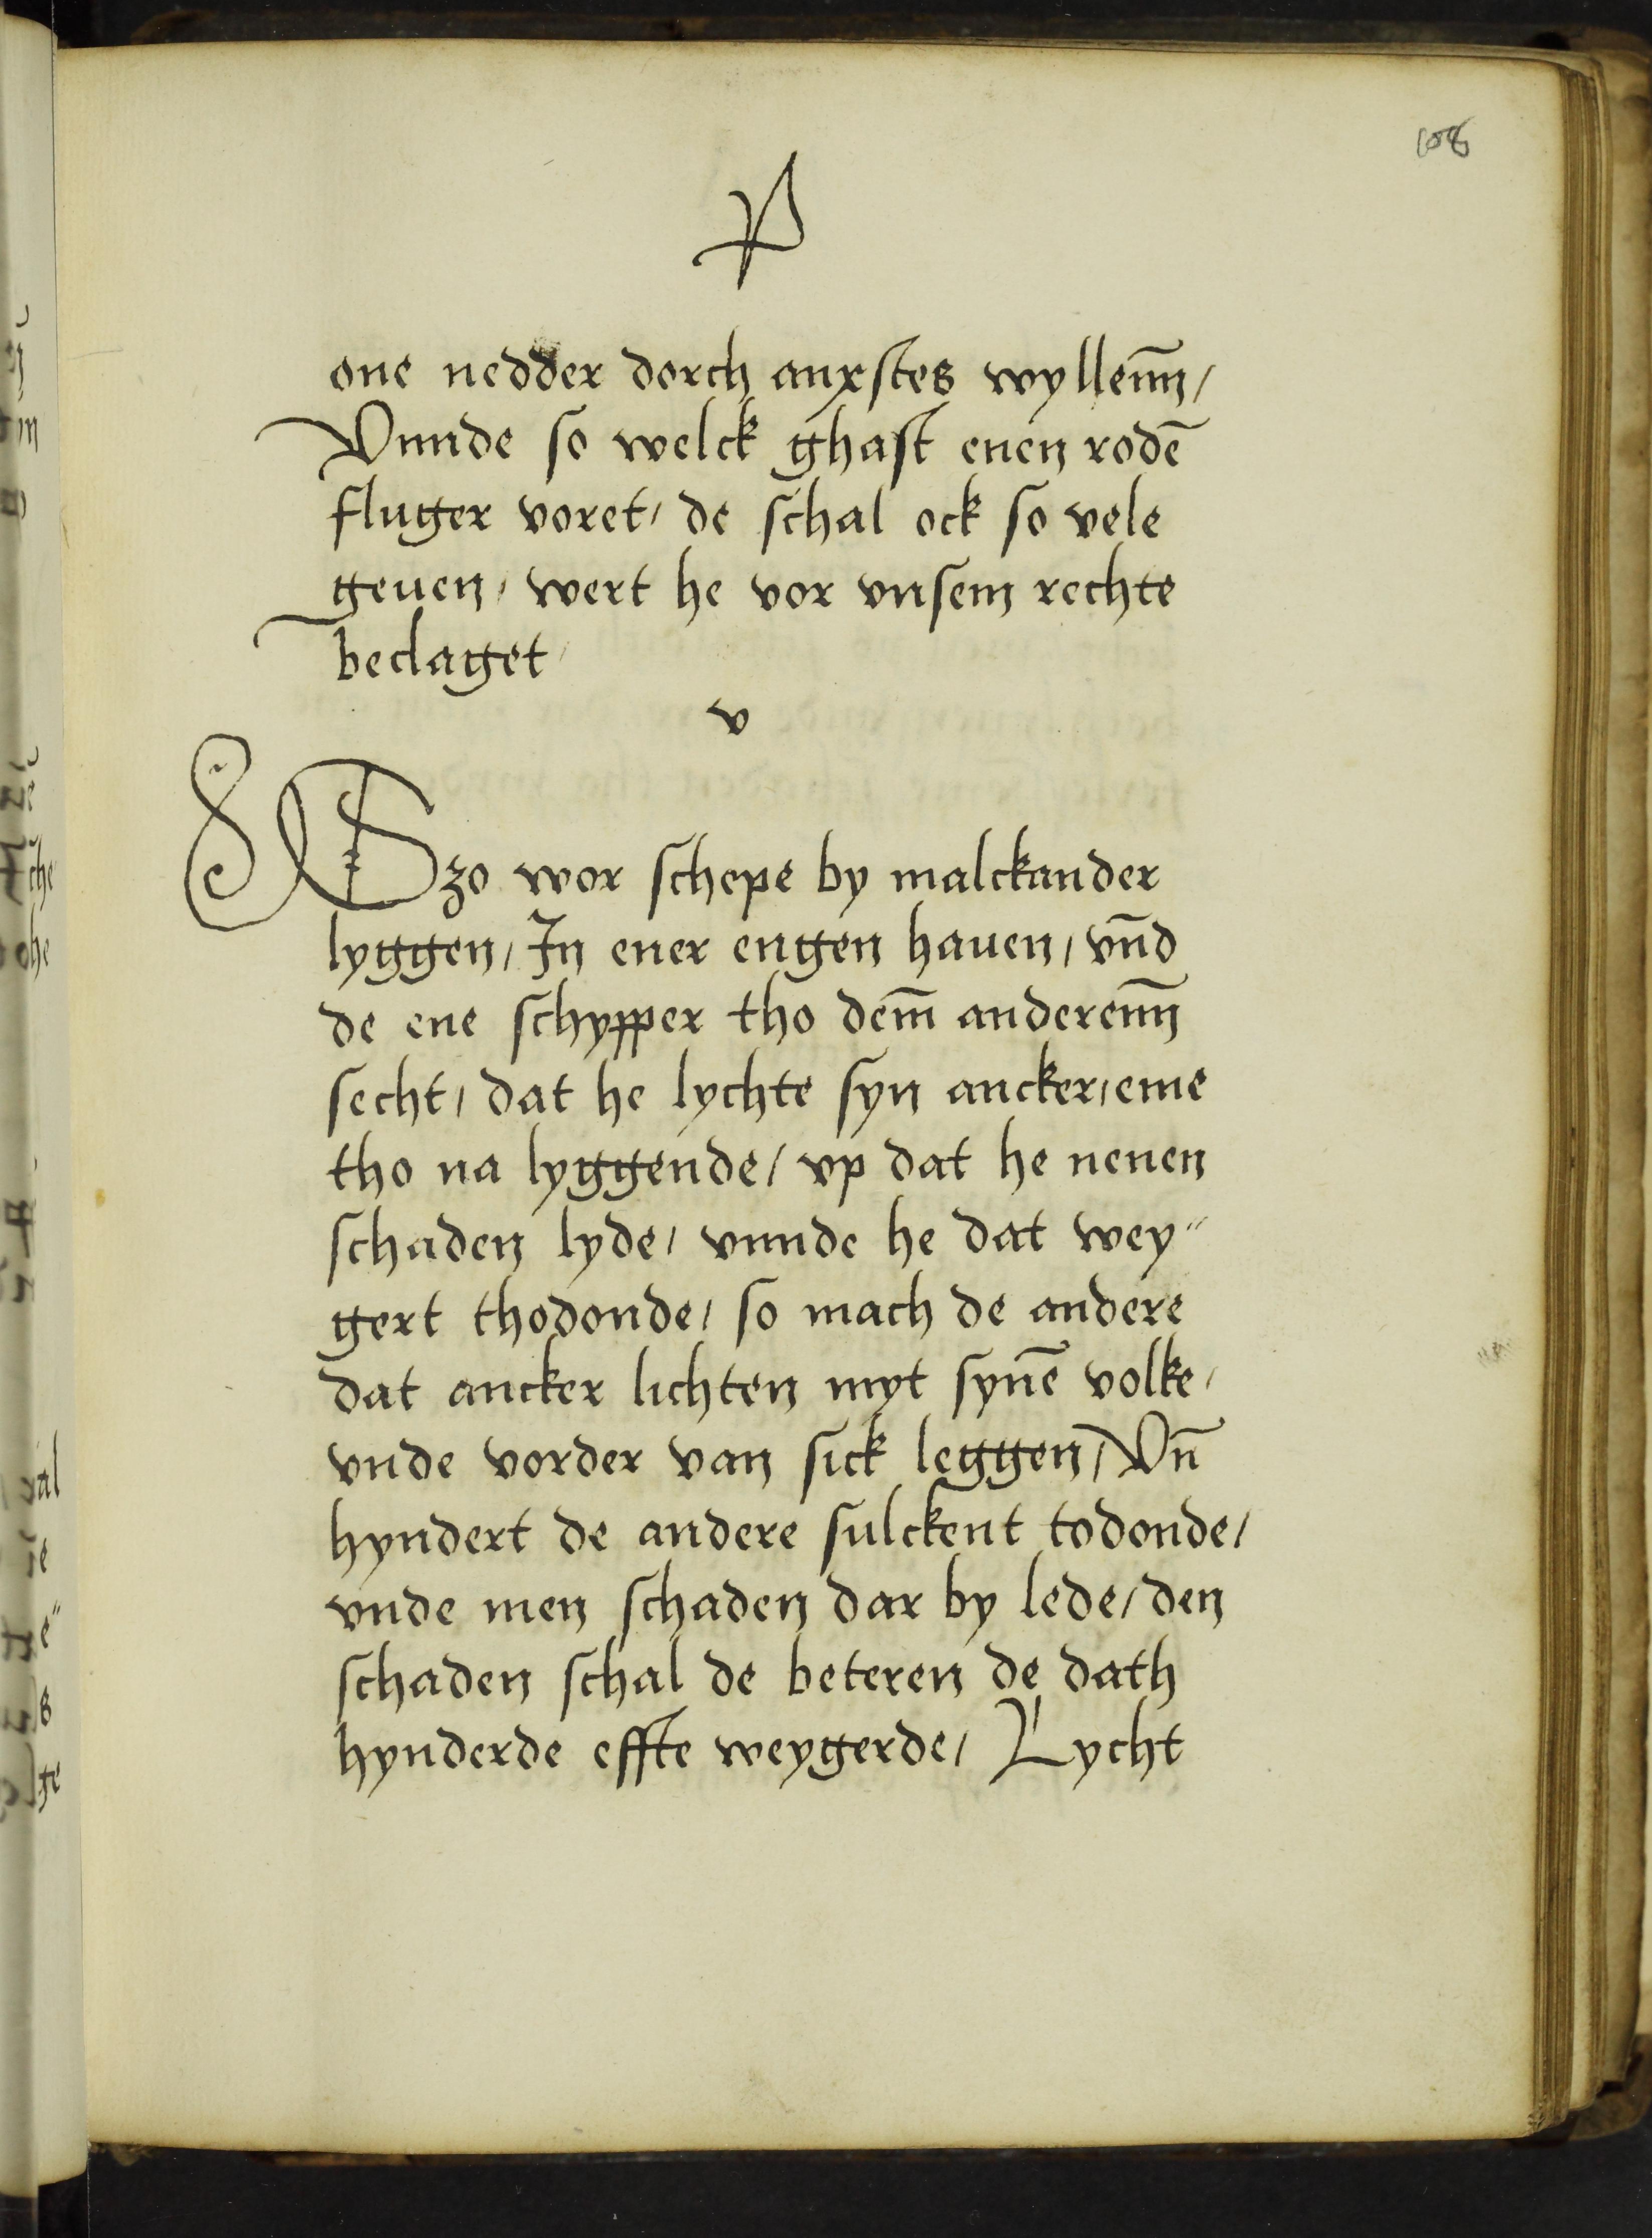 108
P
one nedder dorch anxstes wyllenn̄/
Vnnde so welck ghast enen rodē
fluger voret/ de schal ock so vele
geuen/ wert he vor vnsem rechte
beclaget/
v
Szo wor schepe by malckander
lyggen/ In ener engen hauen/ vn̄d
de ene schypper tho dem̄ anderenn̄
secht/ dat he lychte syn ancker/ eme
tho na lyggende/ vp dat he nenen
schaden lyde/ vnnde he dat wey"
gert thodonde/ so mach de andere
dat ancker lichten myt synē volke/
vnde vorder van sick leggen/ Vn̄
hyndert de andere sulckent todonde/
vnde men schaden dar by lede/ den
schaden schal de beteren de dath
hynderde effte weygerde/ Lycht